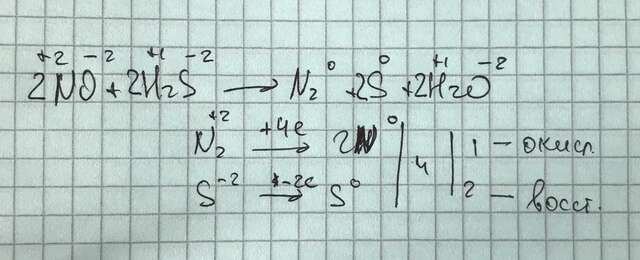 2N⁺²O⁻² + 2H⁺¹₂S⁻² → N₂⁰ + 2S⁰ + 2H⁺¹₂O⁻²
N₂⁺² +4e → 2N⁰ | 4 | 1 – окисл.
S⁻² -2e → S⁰ | | 2 – восст.